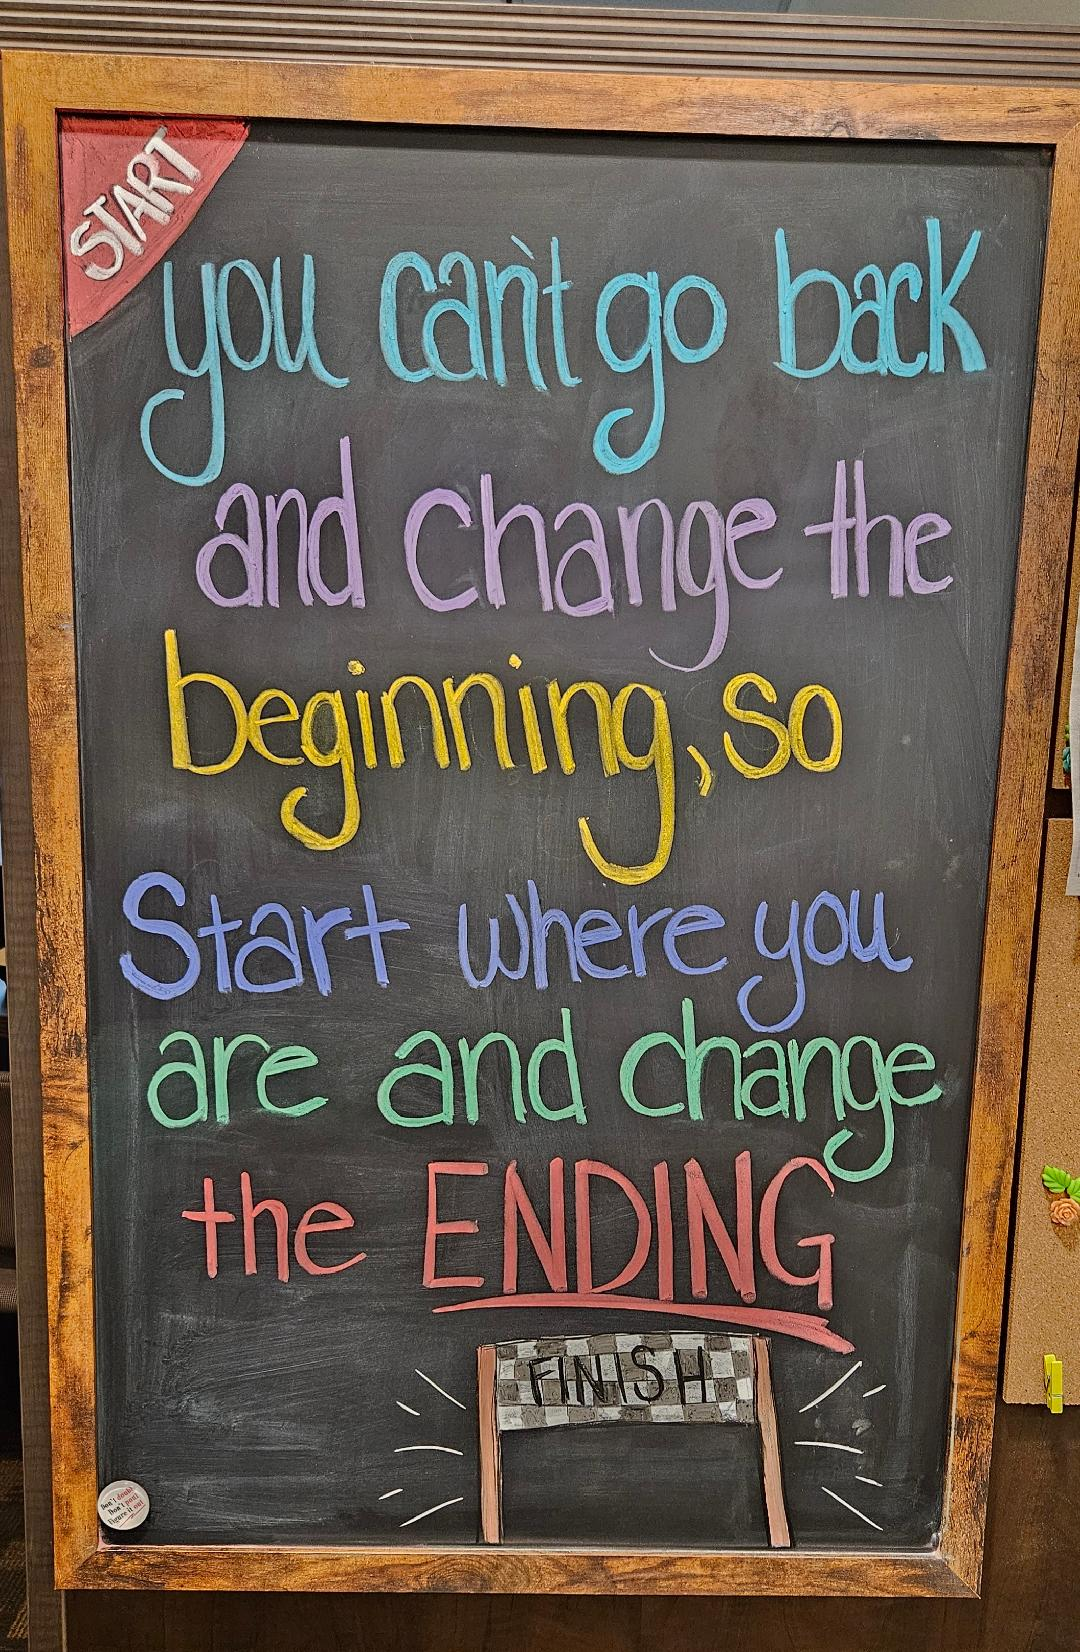 START
you can't go back
and change the
beginning, so
Start where you
are and change
the ENDING
FINISH
Don't doubt
Don't pout
Figure it out